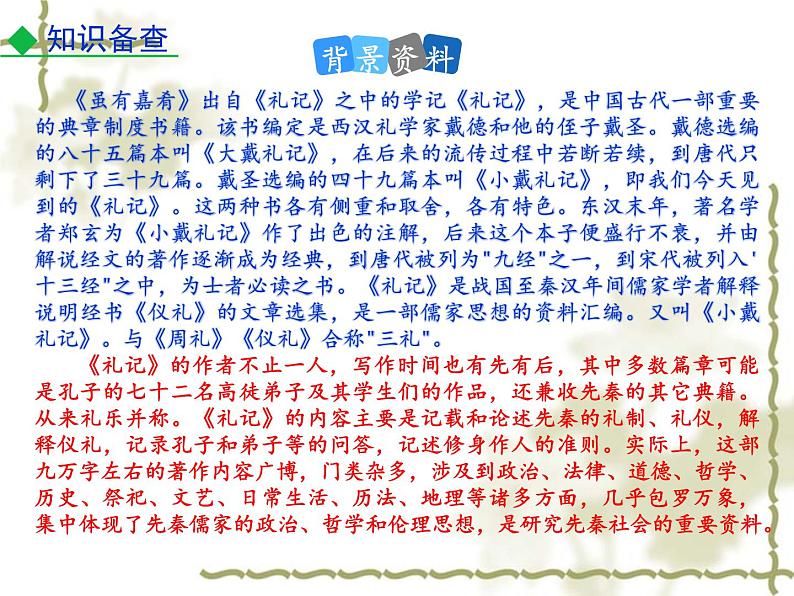 知识备查
背景资料
《虽有嘉肴》出自《礼记》之中的学记《礼记》，是中国古代一部重要
的典章制度书籍。该书编定是西汉礼学家戴德和他的侄子戴圣。戴德选编
的八十五篇本叫《大戴礼记》，在后来的流传过程中若断若续，到唐代只
剩下了三十九篇。戴圣选编的四十九篇本叫《小戴礼记》，即我们今天见
到的《礼记》。这两种书各有侧重和取舍，各有特色。东汉末年，著名学
者郑玄为《小戴礼记》作了出色的注解，后来这个本子便盛行不衰，并由
解说经文的著作逐渐成为经典，到唐代被列为"九经"之一，到宋代被列入'
十三经"之中，为士者必读之书。《礼记》是战国至秦汉年间儒家学者解释
说明经书《仪礼》的文章选集，是一部儒家思想的资料汇编。又叫《小戴
礼记》。与《周礼》《仪礼》合称"三礼"。
《礼记》的作者不止一人，写作时间也有先有后，其中多数篇章可能
是孔子的七十二名高徒弟子及其学生们的作品，还兼收先秦的其它典籍。
从来礼乐并称。《礼记》的内容主要是记载和论述先秦的礼制、礼仪，解
释仪礼，记录孔子和弟子等的问答，记述修身作人的准则。实际上，这部
九万字左右的著作内容广博，门类杂多，涉及到政治、法律、道德、哲学、
历史、祭祀、文艺、日常生活、历法、地理等诸多方面，几乎包罗万象，
集中体现了先秦儒家的政治、哲学和伦理思想，是研究先秦社会的重要资料。